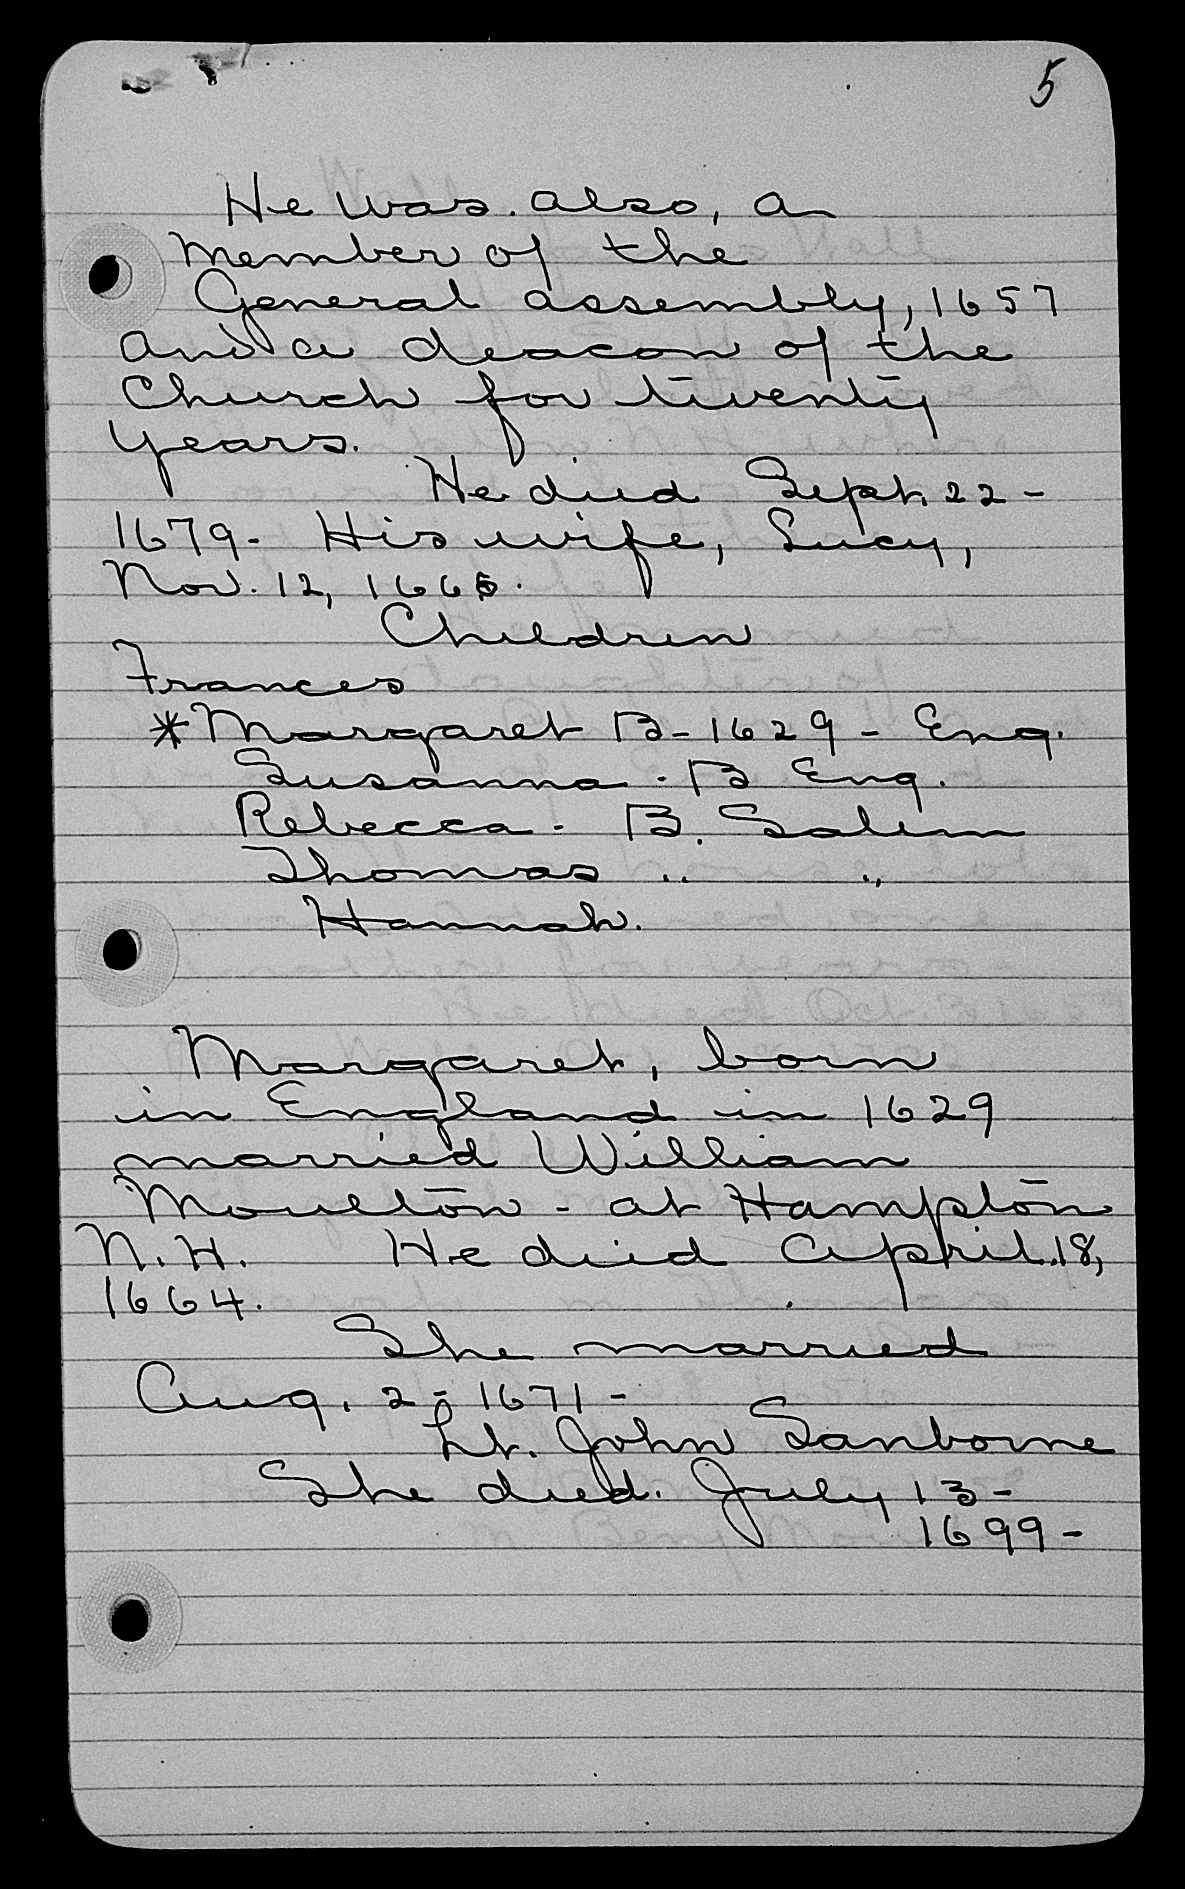 5
He was. also, a
member of the
General assembly, 1657
and a deacon of the
Church for twenty
years.
He died Sept. 22 -
1679 - His wife, Lucy,
Nov. 12, 1665.
Children
Frances
*Margaret B - 1629 - Eng.
Susanna. B Eng.
Rebecca - B. Salem
Thomas " "
Hannah.
Margaret, born
in England in 1629
married William
Moulton - at Hampton
N.H. He died April 18,
1664.
She married
Aug. 2 - 1671 -
Lt. John Sanborne
She died. July 13 -
1699 -